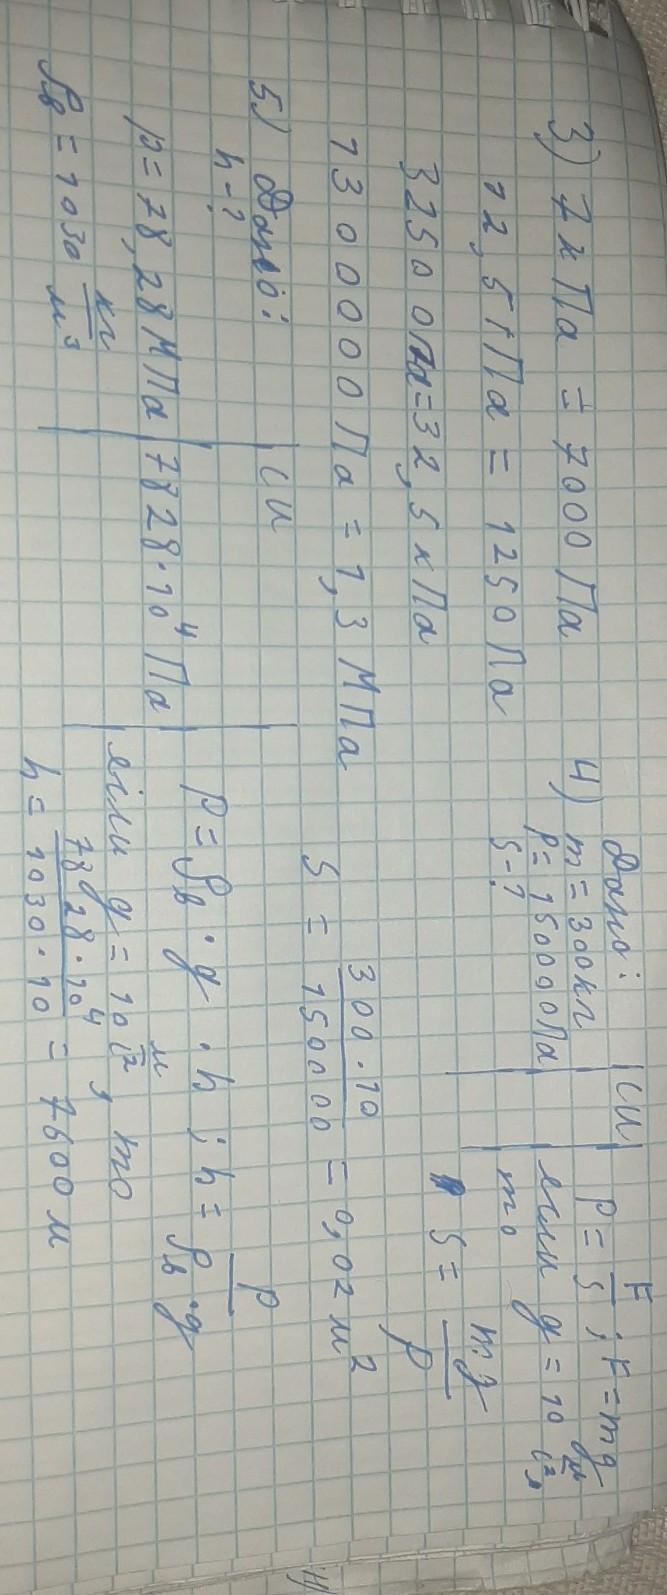 3) 7 кПа = 7000 Па
12,5 гПа = 1250 Па
32500 Па = 32,5 кПа
1300000 Па = 1,3 МПа
4) Дано: | СИ
m = 300 кг
p = 150000 Па
S - ?
p = F/S ; F = mg
если g = 10 м/с²,
то
S = mg/p
S = 300·10/150000 = 0,02 м²
5) Дано: | СИ
h - ?
p = 78,28 МПа | 7828·10⁴ Па
ρв = 1030 кг/м³
p = ρв · g · h ; h = p/ρв·g
если g = 10 м/с², то
h = 7828·10⁴/1030·10 = 7600 м